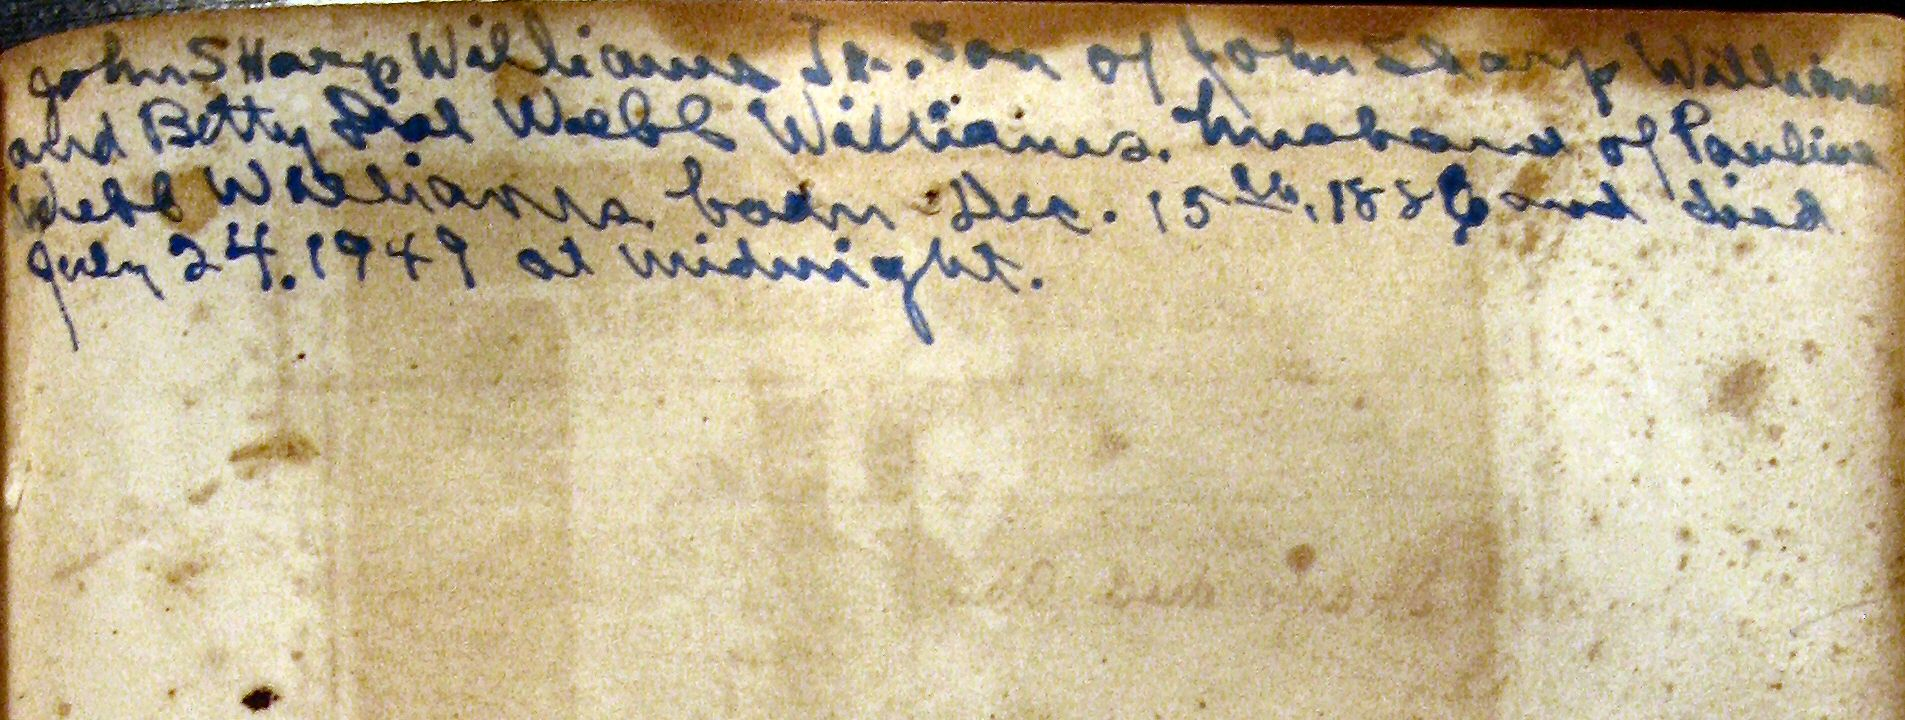 John SHarp Williams Jr. Son of John Sharp Williams
and Betty Dial Webb Williams. husband of Pauline
Webb Williams. born Dec. 15th, 188 and died
July 24. 1949 at midnight.